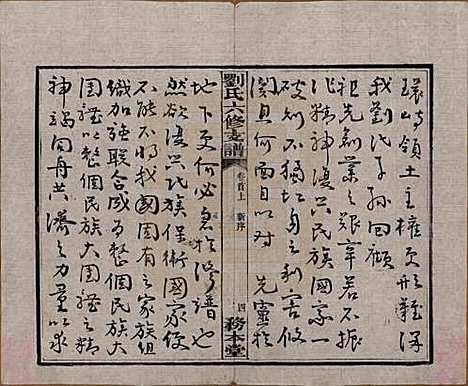 領土主權更形難
我劉氏子孫回顧
祖先創業之艱辛若不振
作精神復興民族國家一
破不獨切身之利害攸
關且何面目以對 先靈於
劉氏六修支譜 卷首上 新序 四 務本堂
地下更何必急於修譜也
然欲復興民族保衛國家便
不能不將我國固有之家族組
織加強聯合成為整個民族大
團體以整個民族大團體之精
神竭同舟共濟之力量以求